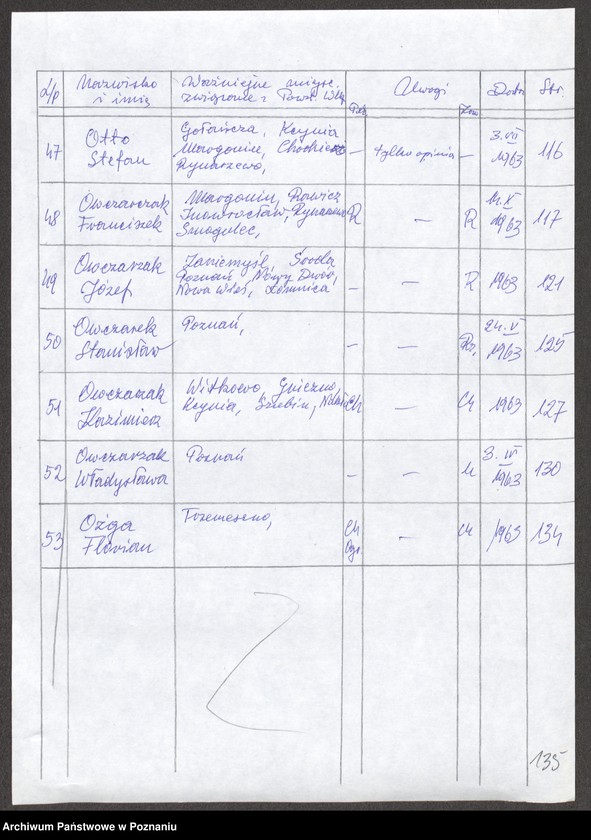 L/p Nazwisko i imię Ważniejsze miejsc. związane z Powst. Wlkp. Uwagi Data Str.
47 Otto Stefan Gołańcza, Kcynia Margonin, Chodzież Rynarzewo, — tylko opinia — 3.VII 1963 116
48 Owczarczak Franciszek Margonin, Rawicz Inowrocław, Rynarzewo Smogulec, R — R 1963 117
49 Owczarzak Józef Zaniemyśl, Środa Poznań, Nowy Dwór, Nowa Wieś, Łomnica — — R 1963 121
50 Owczarek Stanisław Poznań, — — 24.V 1963 125
51 Owczarzak Kazimierz Witkowo, Gniezno, Kcynia, Szubin, Ch — Ch 1963 127
52 Owczarzak Władysława Poznań — — 3.IV 1963 130
53 Ożga Florian Trzemeszno, Ch — Ch 1963 134
135
Archiwum Państwowe w Poznaniu